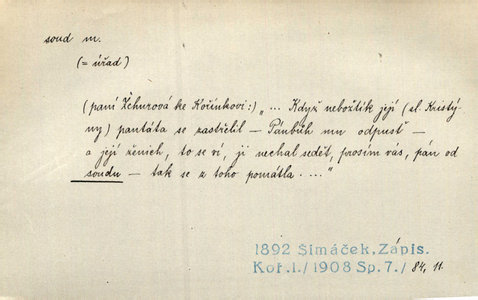 soud m.
(= úřad)
(paní Žehurová ke Kořínkovi:) „... Když nebožtík její (sl. Kristý-
ny) pantáta se zastřelil — Pánbůh mu odpusť —
a její ženich, to se ví, ji nechal sedět, prosím vás, pán od
soudu — tak se z toho pomátla ...."
1892 Šimáček, Zápis.
Koř. 1./1908 Sp. 7./ 84, 11.